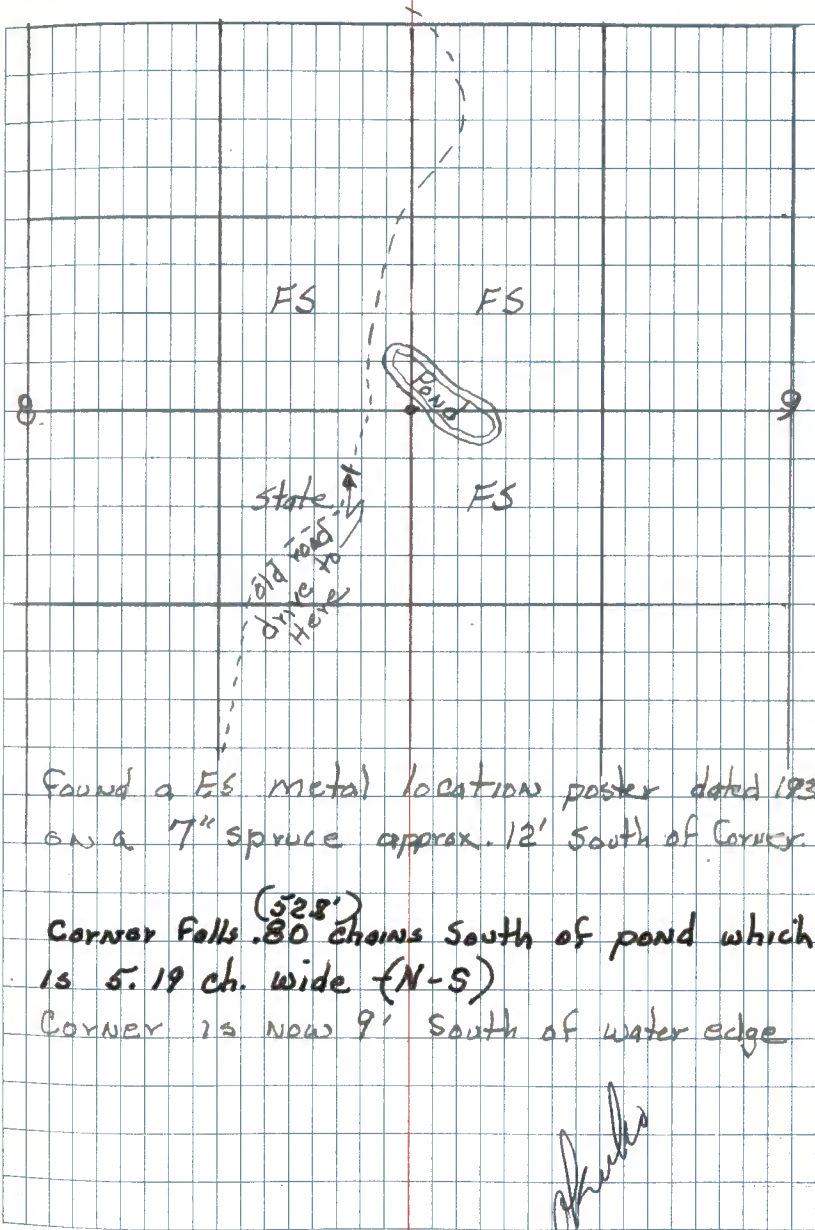 FS
FS
8
Pond
9
State
FS
old road
drive to
Here
Found a FS metal location poster dated 193
on a 7" spruce approx. 12' South of Corner.
(52.8')
Corner Falls .80 chains South of pond which
is 5.19 ch. wide (N-S)
Corner is now 9' South of water edge